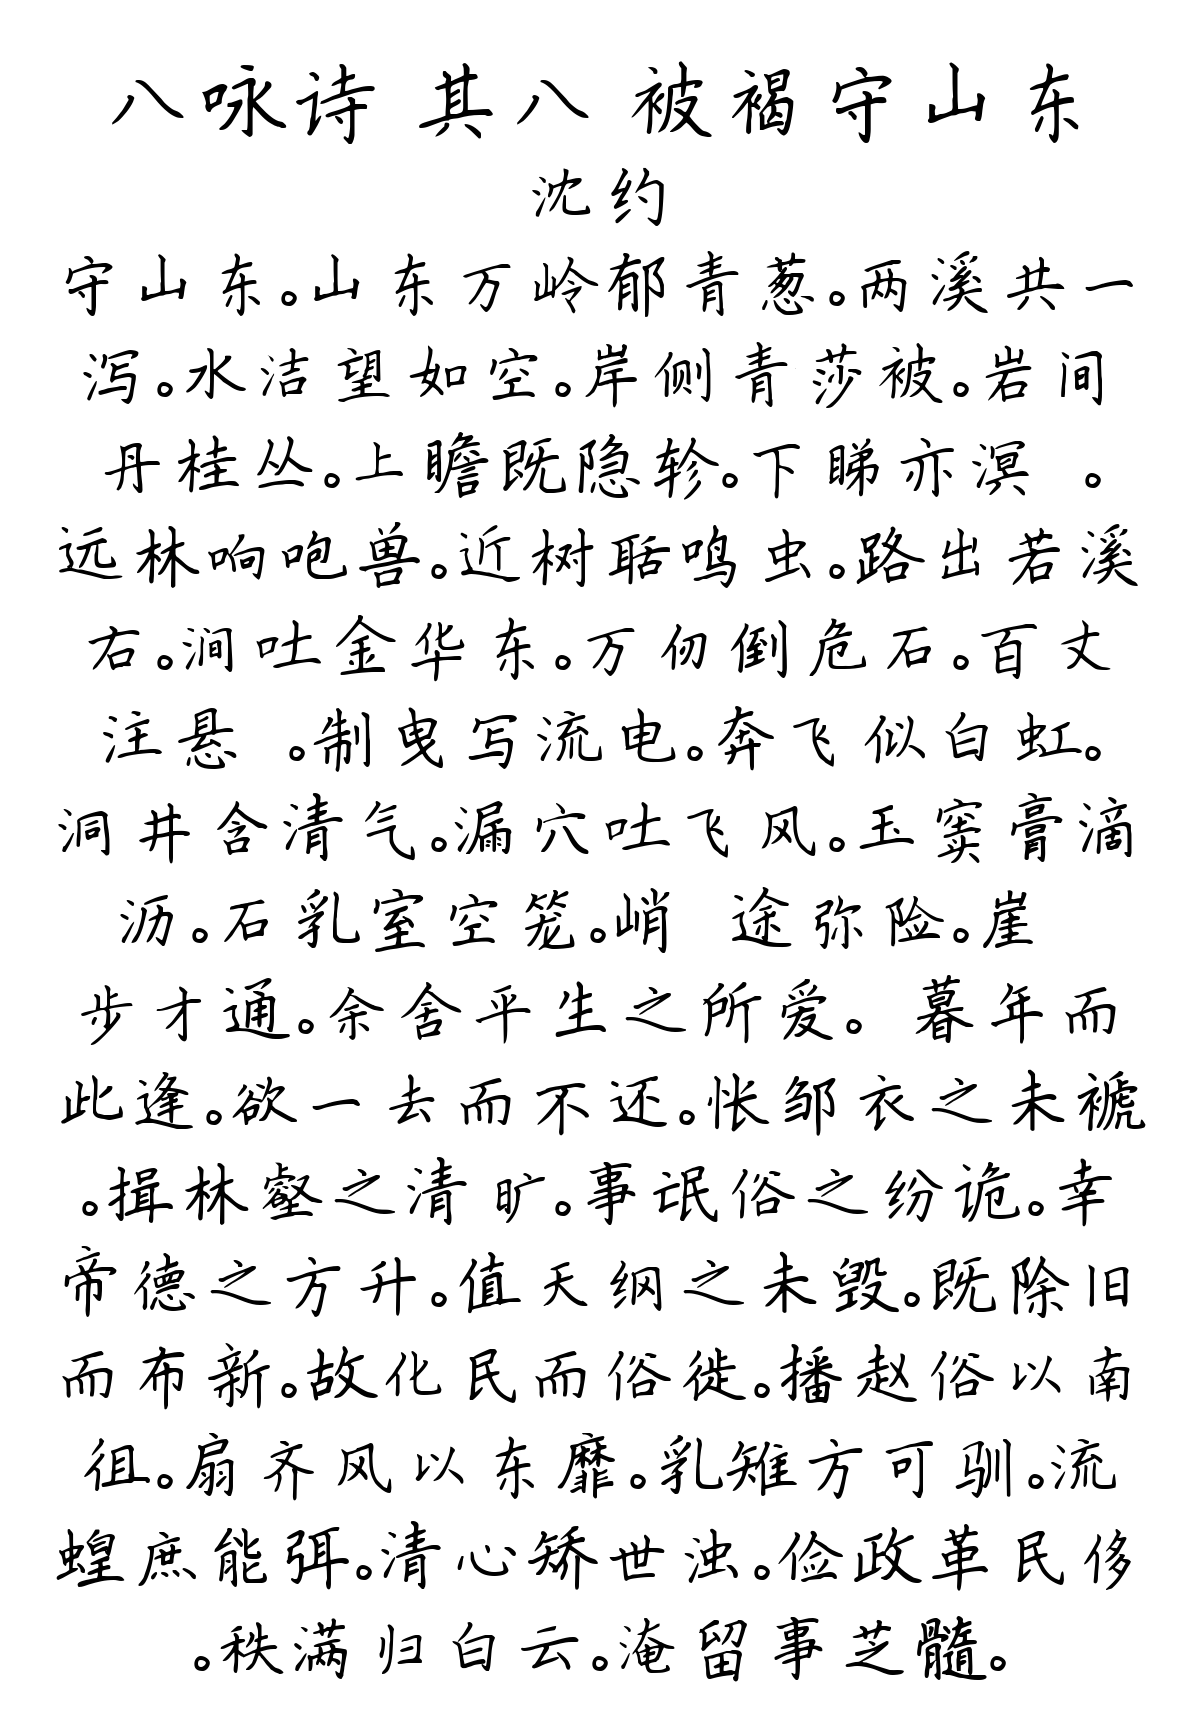 八咏诗 其八 被褐守山东
沈约
守山东。山东万岭郁青葱。两溪共一
泻。水洁望如空。岸侧青莎被。岩间
丹桂丛。上瞻既隐轸。下睇亦溟 。
远林响咆兽。近树聒鸣虫。路出若溪
右。涧吐金华东。万仞倒危石。百丈
注悬 。制曳写流电。奔飞似白虹。
洞井含清气。漏穴吐飞风。玉窦膏滴
沥。石乳室空笼。峭 途弥险。崖
步才通。余舍平生之所爱。 暮年而
此逢。欲一去而不还。怅邹衣之未褫
。揖林壑之清旷。事氓俗之纷诡。幸
帝德之方升。值天纲之未毁。既除旧
而布新。故化民而俗徙。播赵俗以南
徂。扇齐风以东靡。乳雉方可驯。流
蝗庶能弭。清心矫世浊。俭政革民侈
。秩满归白云。淹留事芝髓。